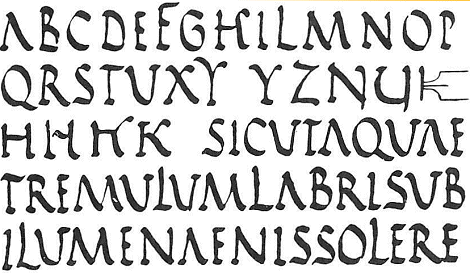 ABCDEFGHILMNOP
QRSTUXY YZN
HHHK SICUTAQUAE
TREMULUMLABRISUB
ILUMENAENISSOLERE